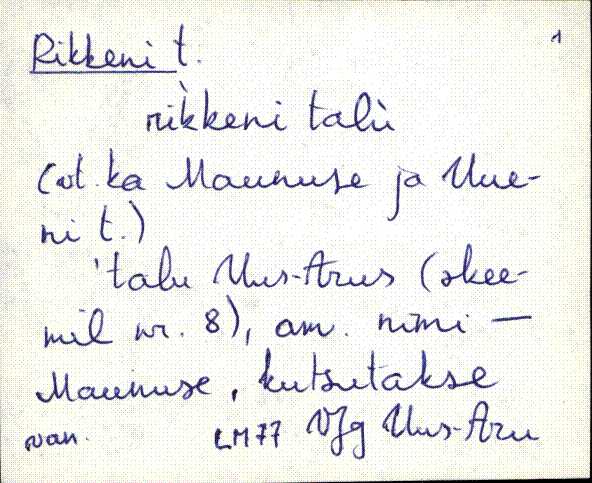 Rikkeni t. 1
rìkkeni talù
(vt. ka Maunuse ja Uue-
ni t.)
'talu Uus-Arus (skee-
mil nr. 8), am. nimi —
Maunuse, kutsutakse
van. LM77 Vjg Uus-Aru